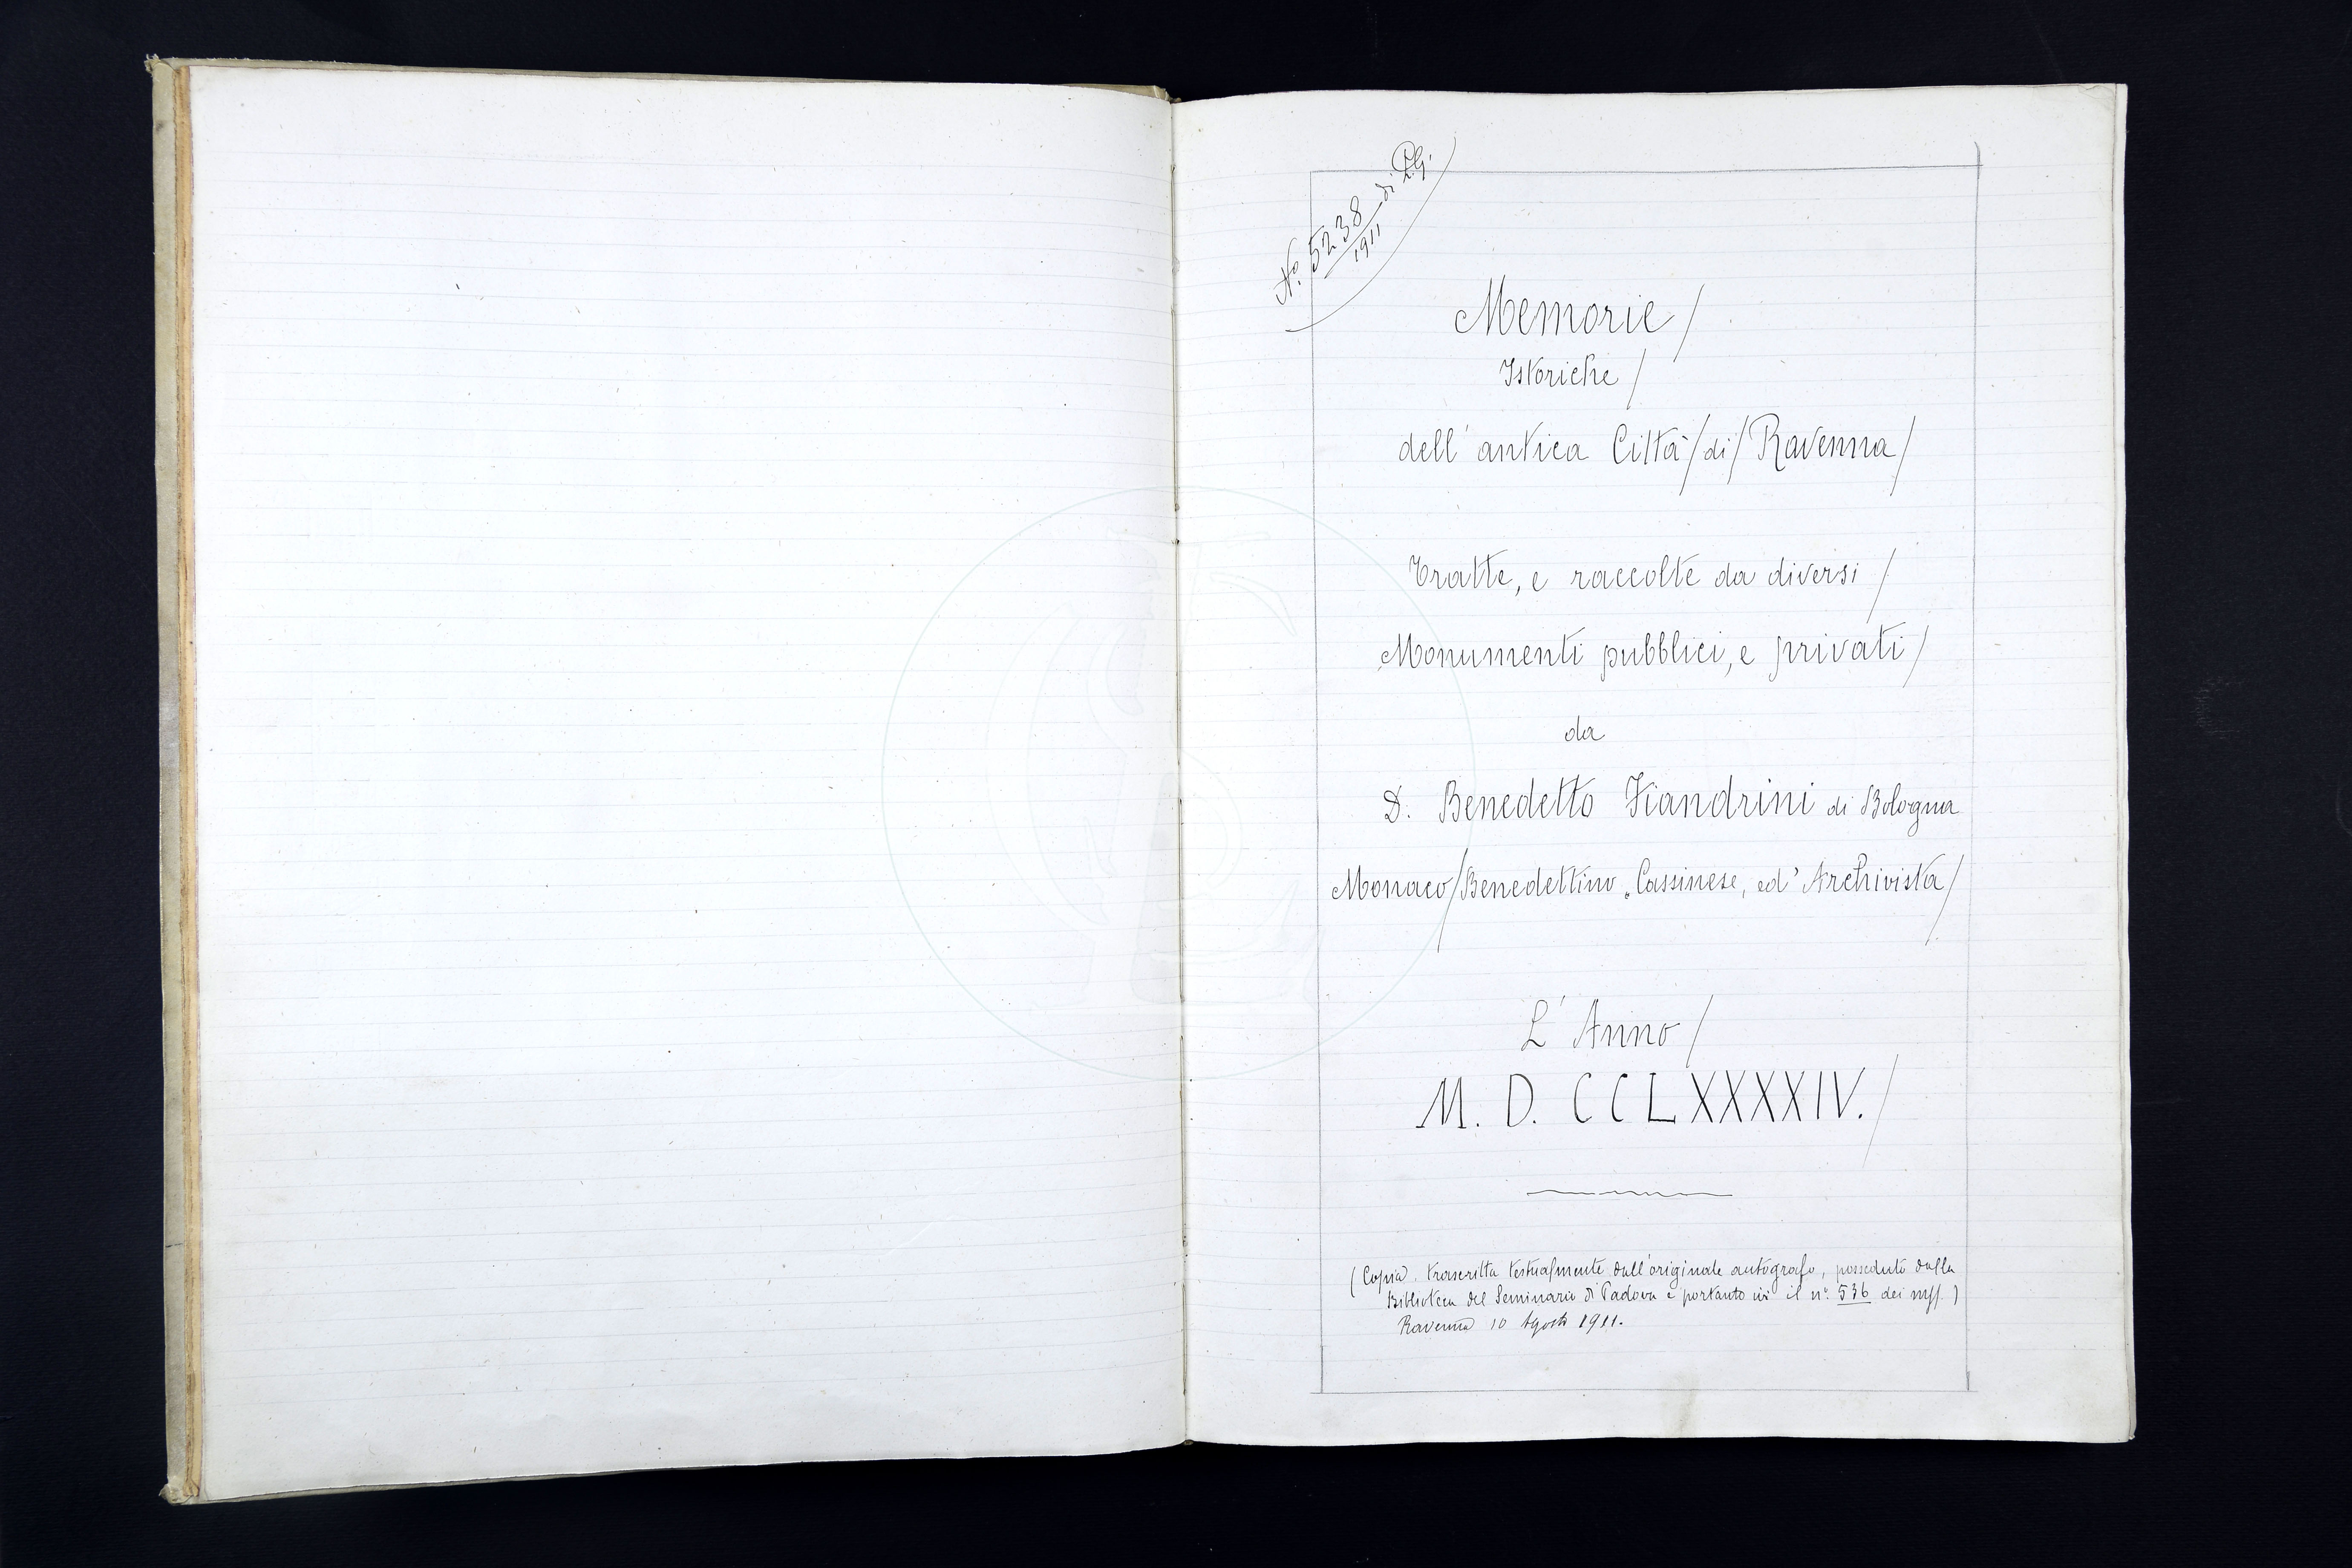 No. 5238 di P.G.
1911
Memorie/
Istoriche/
dell'antica Città/di/Ravenna/
Tratte, e raccolte da diversi/
Monumenti pubblici, e privati/
da
D. Benedetto Fiandrini di Bologna
Monaco/Benedettino Cassinese, ed' Archivista/
L'Anno/
M. D. CCLXXXXIV./
(Copia trascritta testualmente dall'originale autografo, posseduto dalla
Biblioteca del Seminario di Padova e portante ivi il n.º 536 dei mss.)
Ravenna 10 Agosto 1911.